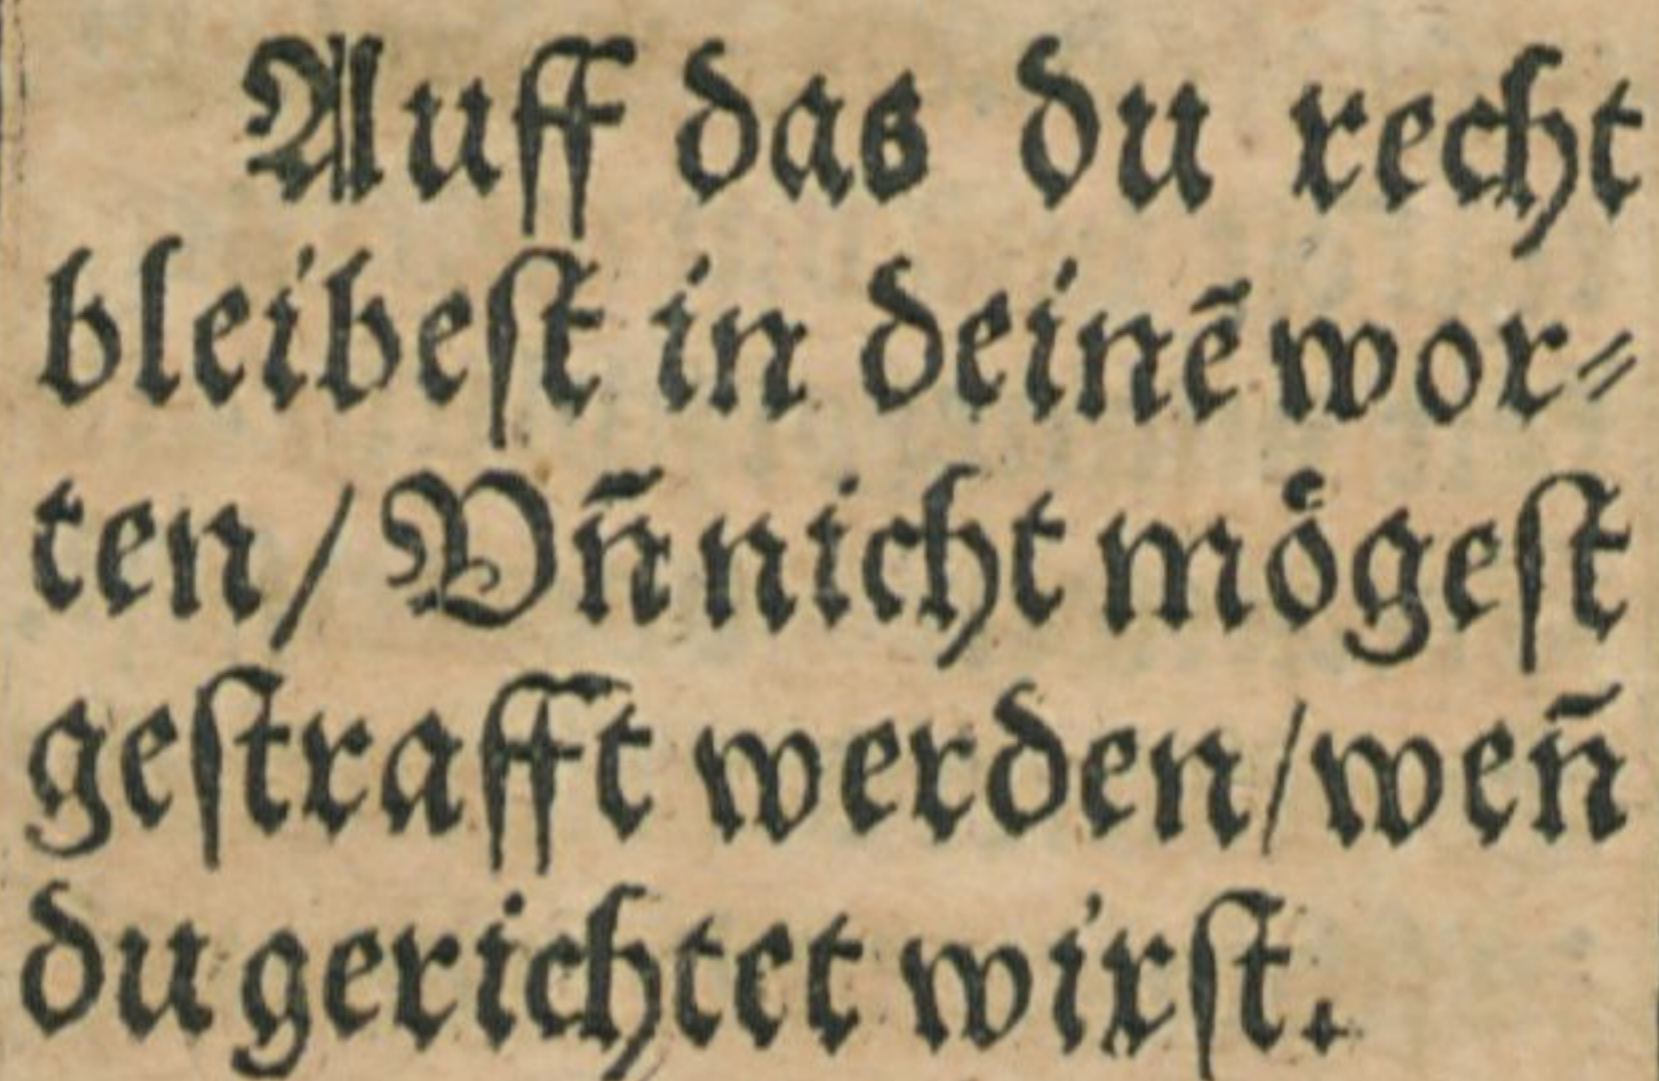 Auff das du recht
bleibeſt in deinẽ wor⸗
ten / Vñ nicht moͤgeſt
geſtrafft werden / weñ
du gerichtet wirſt.